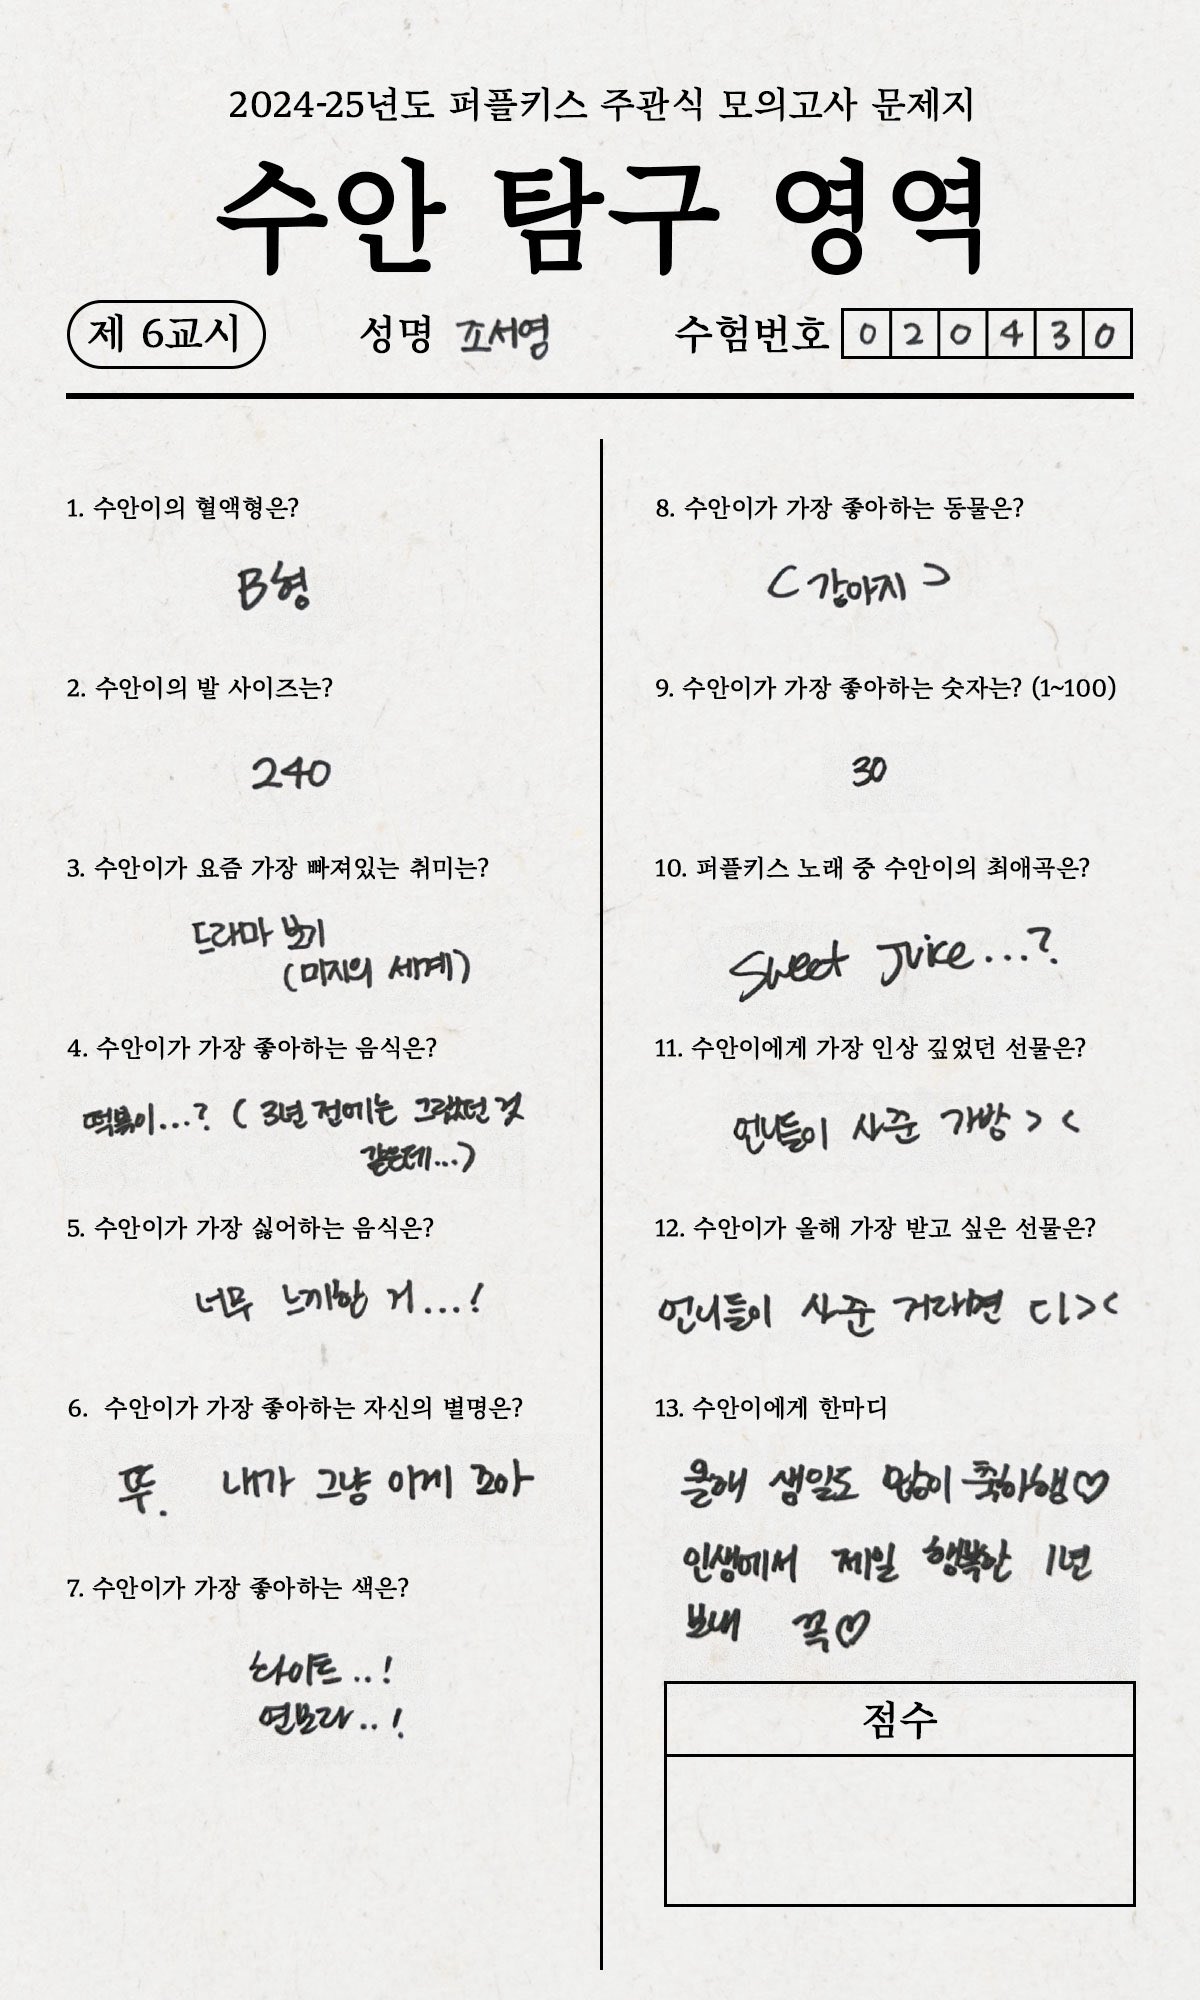 2024-25년도 퍼플키스 주관식 모의고사 문제지
수안 탐구 영역
제 6교시
성명 조서영
수험번호 0 2 0 4 3 0
1. 수안이의 혈액형은?
B형
2. 수안이의 발 사이즈는?
240
3. 수안이가 요즘 가장 빠져있는 취미는?
드라마 보기
(미지의 세계)
4. 수안이가 가장 좋아하는 음식은?
떡볶이...? ( 3년 전에는 그랬던 것
같은데...)
5. 수안이가 가장 싫어하는 음식은?
너무 느끼한 거...!
6. 수안이가 가장 좋아하는 자신의 별명은?
뚜. 내가 그냥 이게 조아
7. 수안이가 가장 좋아하는 색은?
화이트..!
연보라..!
8. 수안이가 가장 좋아하는 동물은?
( 강아지 )
9. 수안이가 가장 좋아하는 숫자는? (1~100)
30
10. 퍼플키스 노래 중 수안이의 최애곡은?
Sweet Juice...?
11. 수안이에게 가장 인상 깊었던 선물은?
언니들이 사준 가방 > <
12. 수안이가 올해 가장 받고 싶은 선물은?
언니들이 사준 거라면 다><
13. 수안이에게 한마디
올해 생일도 많이 축하행♡
인생에서 제일 행복한 1년
보내 꼭♡
점수